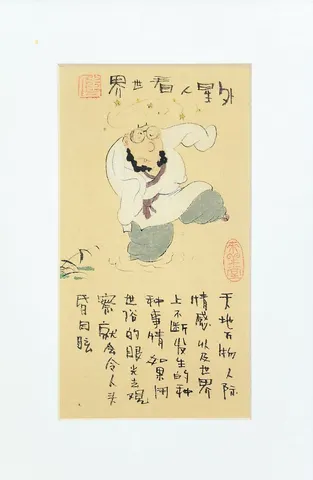 外星人看世界
天地万物人际
情感以及世界
上不断发生的种
种事情如果用
世俗的眼光去观
察就会令人头
昏目眩